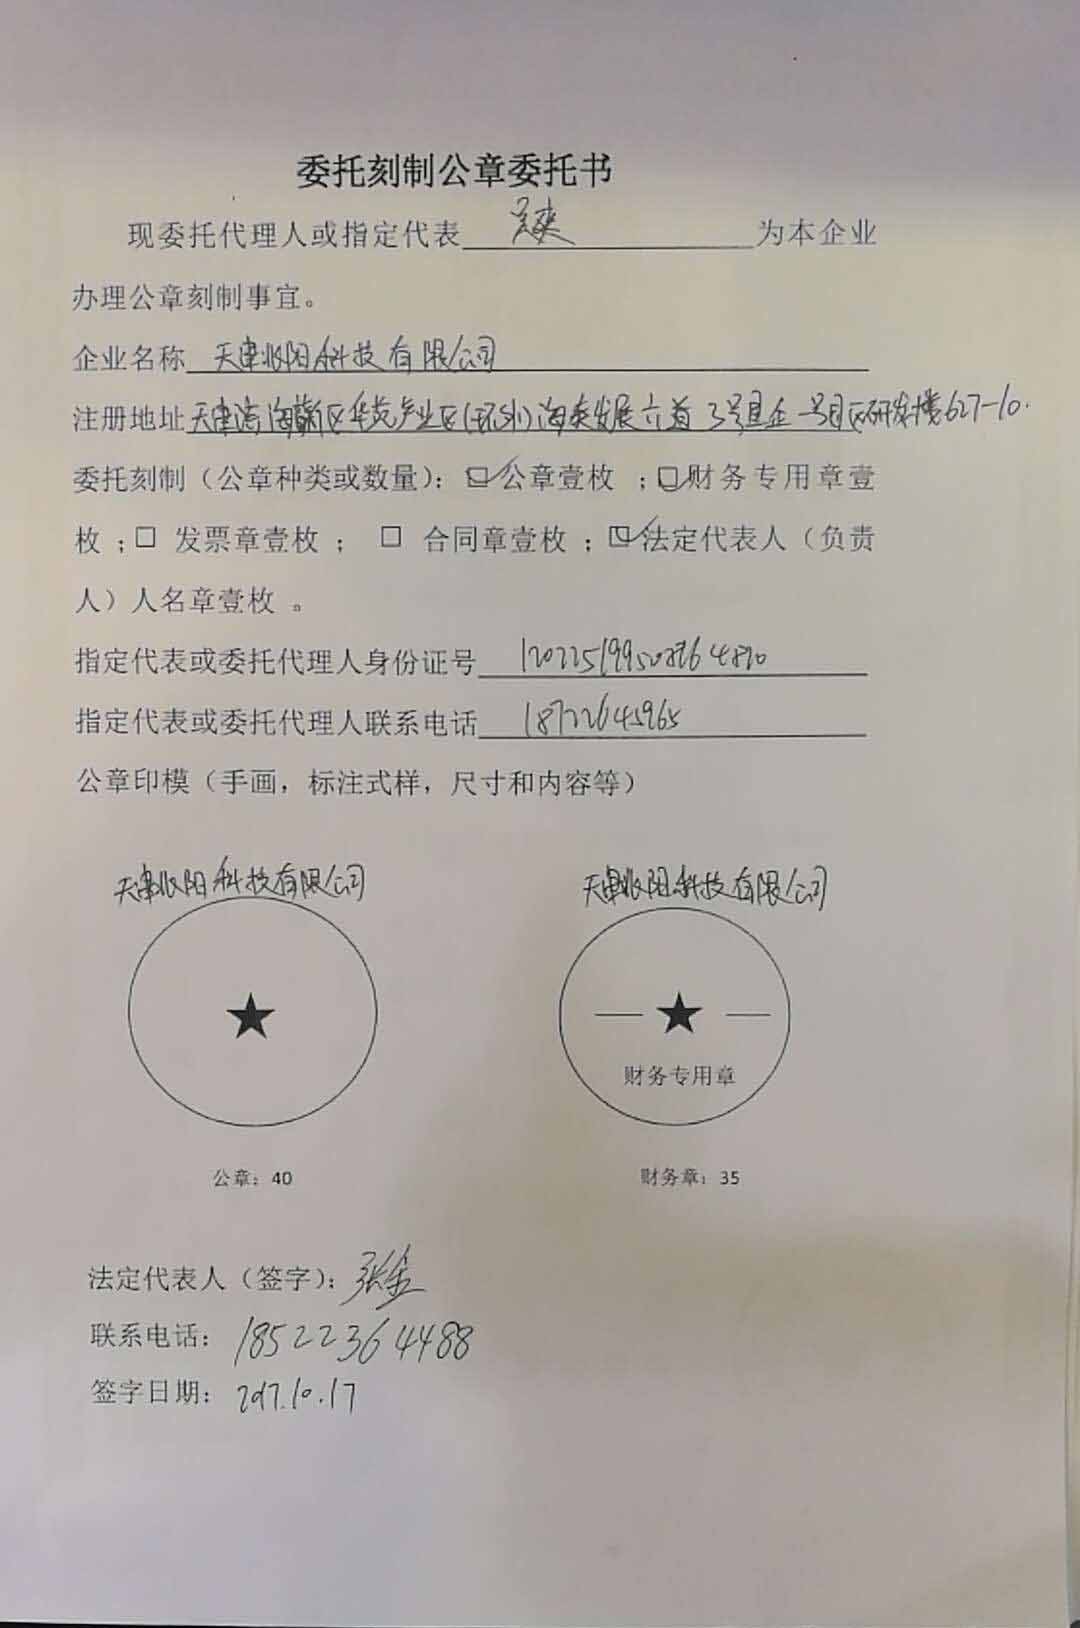 委托刻制公章委托书
现委托代理人或指定代表 吴爽 为本企业
办理公章刻制事宜。
企业名称 天津 阳科技有限公司
注册地址 天津滨海高新区华苑产业区(环外)海泰发展六道3号星企一号园区研发楼627-10.
委托刻制（公章种类或数量）：☑公章壹枚 ；☑财务专用章壹
枚 ；□ 发票章壹枚 ； □ 合同章壹枚 ；☑法定代表人（负责
人）人名章壹枚 。
指定代表或委托代理人身份证号
指定代表或委托代理人联系电话 18722645965
公章印模（手画，标注式样，尺寸和内容等）
天津 阳科技有限公司 天津 阳科技有限公司
财务专用章
公章：40 财务章：35
法定代表人（签字）：张金
联系电话：18522364488
签字日期：2017.10.17